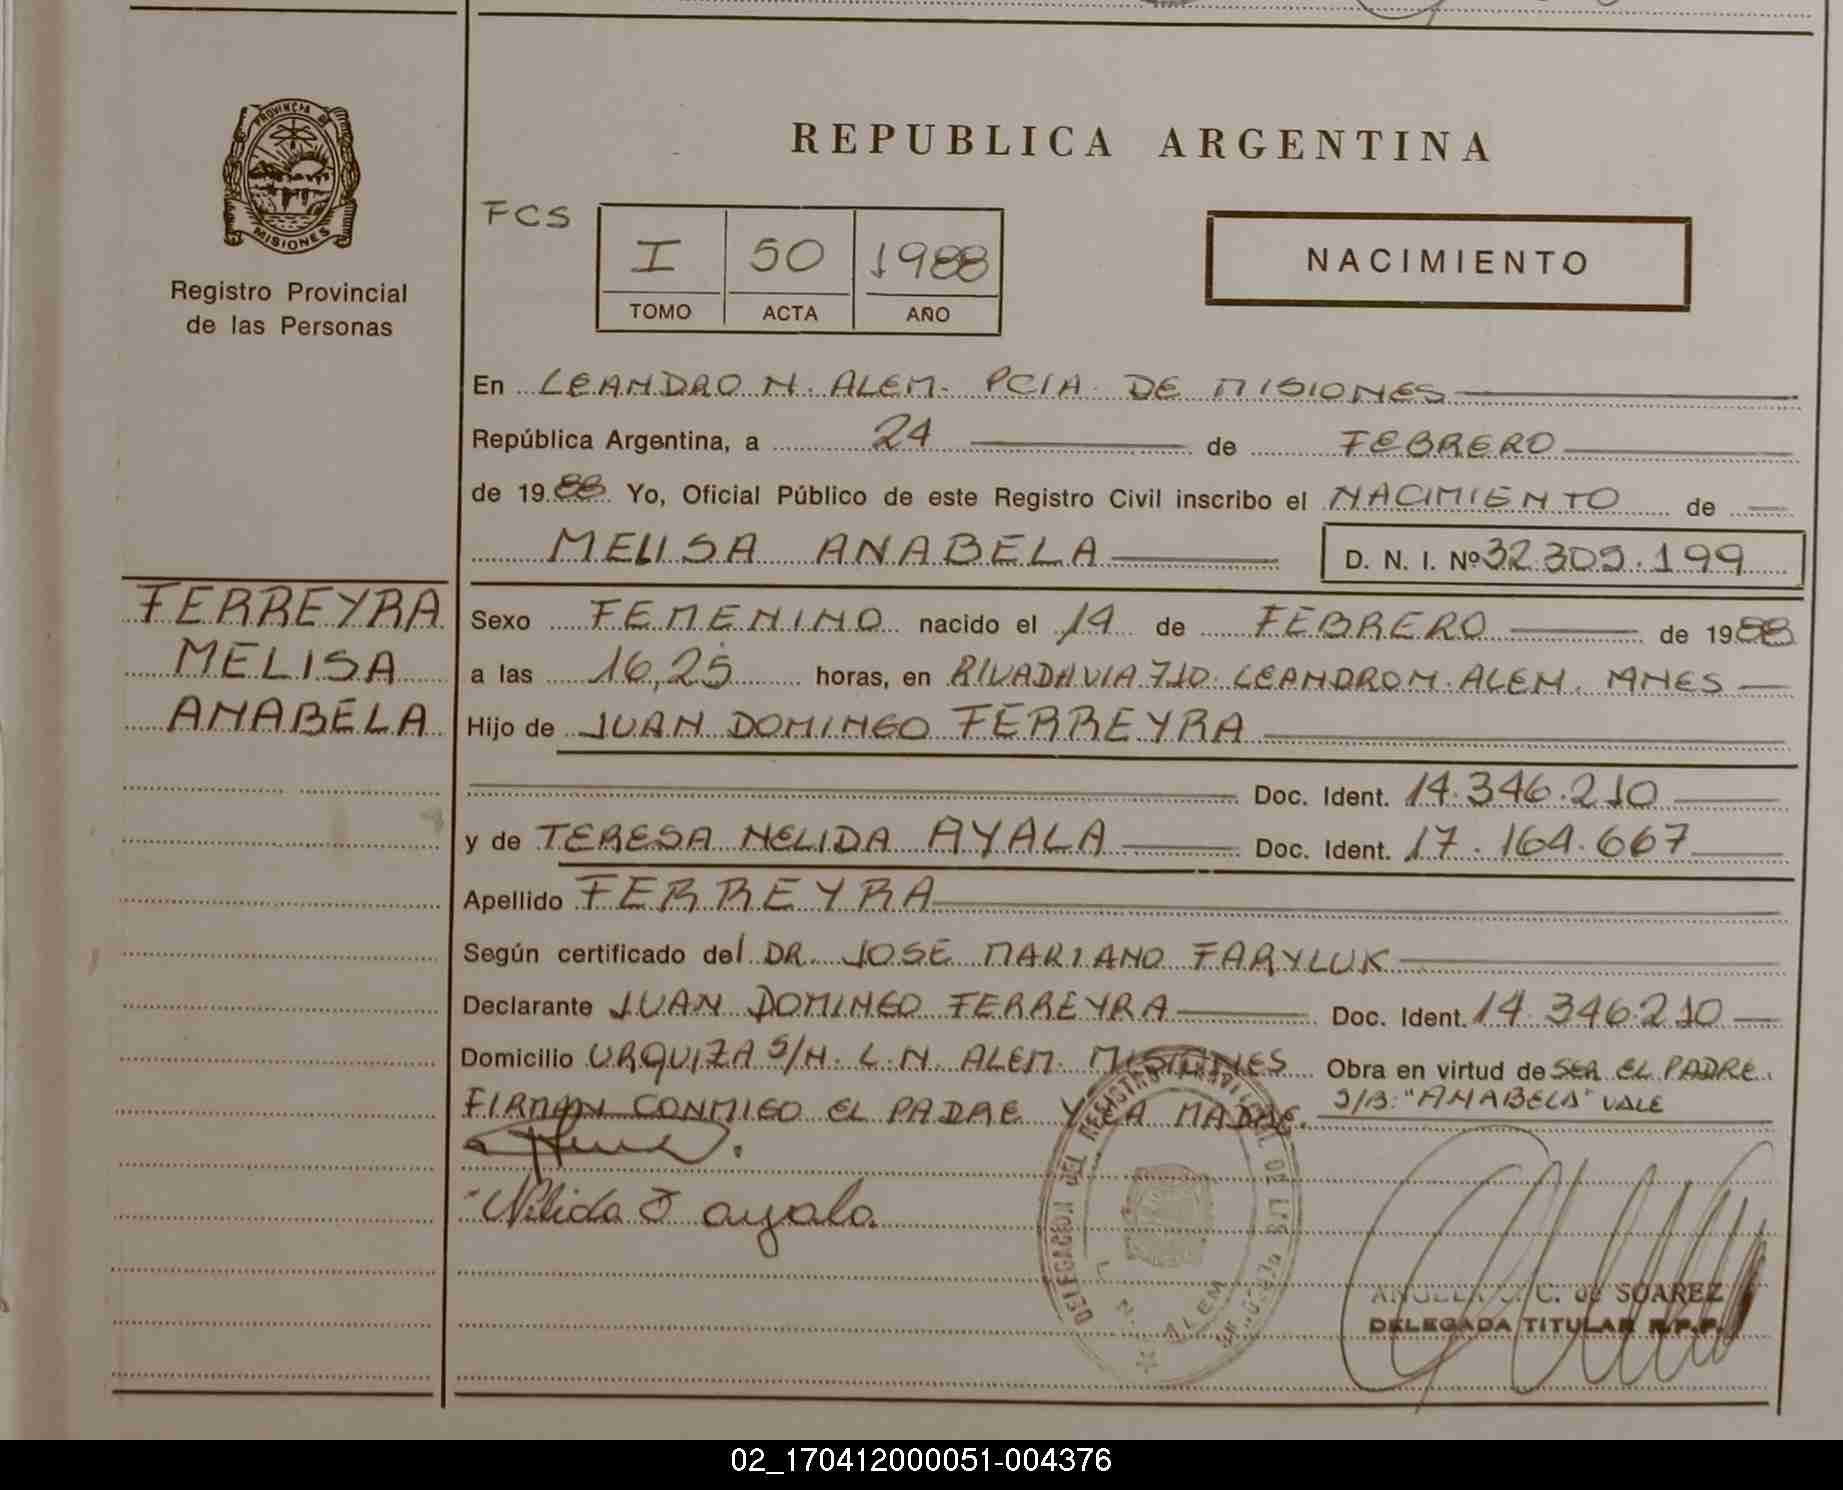 PROVINCIA DE
MISIONES
Registro Provincial
de las Personas
REPUBLICA ARGENTINA
FCS
I 50 1988
TOMO ACTA AÑO
NACIMIENTO
En LEANDRO N. ALEM. PCIA. DE MISIONES
República Argentina, a 24 de FEBRERO
de 1988 Yo, Oficial Público de este Registro Civil inscribo el NACIMIENTO de
MELISA ANABELA D. N. I. Nº 32.309.199
FERREYRA
MELISA
ANABELA
Sexo FEMENINO nacido el 14 de FEBRERO de 1988
a las 16,25 horas, en RIVADAVIA 710. LEANDRO N. ALEM. MNES
Hijo de JUAN DOMINGO FERREYRA
Doc. Ident. 14.346.210
y de TERESA NELIDA AYALA Doc. Ident. 17.164.667
Apellido FERREYRA
Según certificado del DR. JOSE MARIANO FARYLUK
Declarante JUAN DOMINGO FERREYRA Doc. Ident. 14.346.210
Domicilio URQUIZA S/N. L.N. ALEM. MISIONES Obra en virtud de SER EL PADRE.
FIRMAN CONMIGO EL PADRE Y LA MADRE. S/B: "ANABELA" VALE
Nélida T ayala
DELEGACION DEL REGISTRO PROVINCIAL DE LAS PERSONAS
L. N. ALEM
C. de SOAREZ
DELEGADA TITULAR R.P.P.
02_170412000051-004376